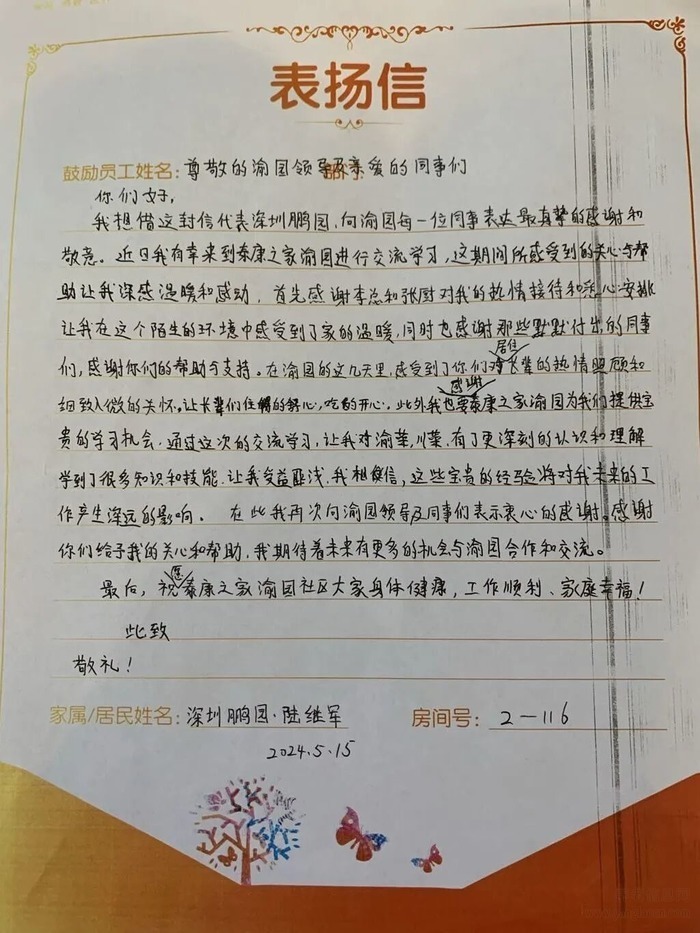 表扬信
鼓励员工姓名：尊敬的渝园领导及亲爱的同事们
你们好，
我想借这封信代表深圳鹏园，向渝园每一位同事表达最真挚的感谢和
敬意。近日我有幸来到泰康之家渝园进行交流学习，这期间所感受到的关心与帮
助让我深感温暖和感动，首先感谢李总和张厨对我的热情接待和悉心安排
让我在这个陌生的环境中感受到了家的温暖，同时也感谢那些默默付出的同事
们，感谢你们的帮助与支持。在渝园的这几天里，感受到了你们对居住长辈的热情照顾和
细致入微的关怀，让长辈们住的舒心，吃的开心，此外我也要感谢泰康之家渝园为我们提供宝
贵的学习机会，通过这次的交流学习，让我对渝菜，川菜，有了更深刻的认识和理解
学到了很多知识和技能，让我受益匪浅，我相信，这些宝贵的经验将对我未来的工
作产生深远的影响。 在此我再次向渝园领导及同事们表示衷心的感谢。感谢
你们给予我的关心和帮助，我期待着未来有更多的机会与渝园合作和交流。
最后，祝愿泰康之家渝园社区大家身体健康，工作顺利、家庭幸福！
此致
敬礼！
家属/居民姓名：深圳鹏园·陆继军 房间号：2-116
2024.5.15